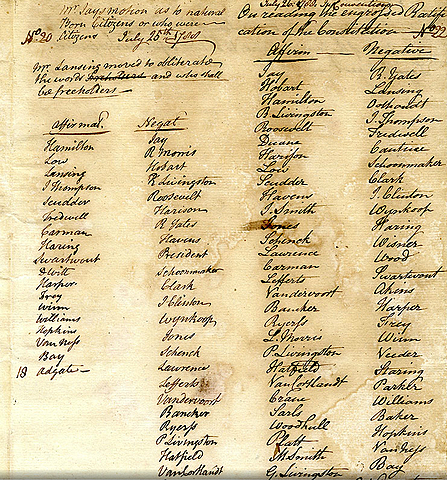 Mr. Jays motion as to national
Born Citizens or who were
No. 20 Citizens July 25th 1788
Mr. Lansing moved to obliterate
the words freeholders and who shall
be freeholders
affirmat.
Hamilton
Low
Lansing
J Thompson
Scudder
Tredwell
Carman
Haring
Swartwout
DWitt
Harper
Frey
Winn
Williams
Hopkins
Van Ness
Bay
18 adgate
Negat
Jay
R Morris
Hobart
R Livingston
Roosevelt
Harison
R Yates
Havens
President
Schoonmaker
Clark
J Clinton
Wynkoop
Jones
Schenck
Lawrence
Lefferts
Vandervoort
Bancker
Ryerss
P Livingston
Hatfield
Van Cortlandt
July 26. 1788.
On reading the engrossed Ratifi
cation of the Constitution No.
Affirm
Jay
Hobart
Hamilton
R. Livingston
Roosevelt
Duane
Harison
Low
Scudder
Havens
J. Smith
Jones
Schenck
Lawrence
Carman
Lefferts
Vandervoort
Bancker
Ryerss
L. Morris
P. Livingston
Hatfield
Van Cortlandt
Crane
Sarls
Woodhull
Platt
M Smith
G. Livingston
Negative
R. Yates
Lansing
Outhoudt
J. Thompson
Tredwell
Cantine
Schoonmaker
Clark
J. Clinton
Wynkoop
Haring
Wisner
Wood
Swartwout
Akins
Harper
Frey
Winn
Veeder
Staring
Parker
Williams
Baker
Hopkins
Van Ness
Bay